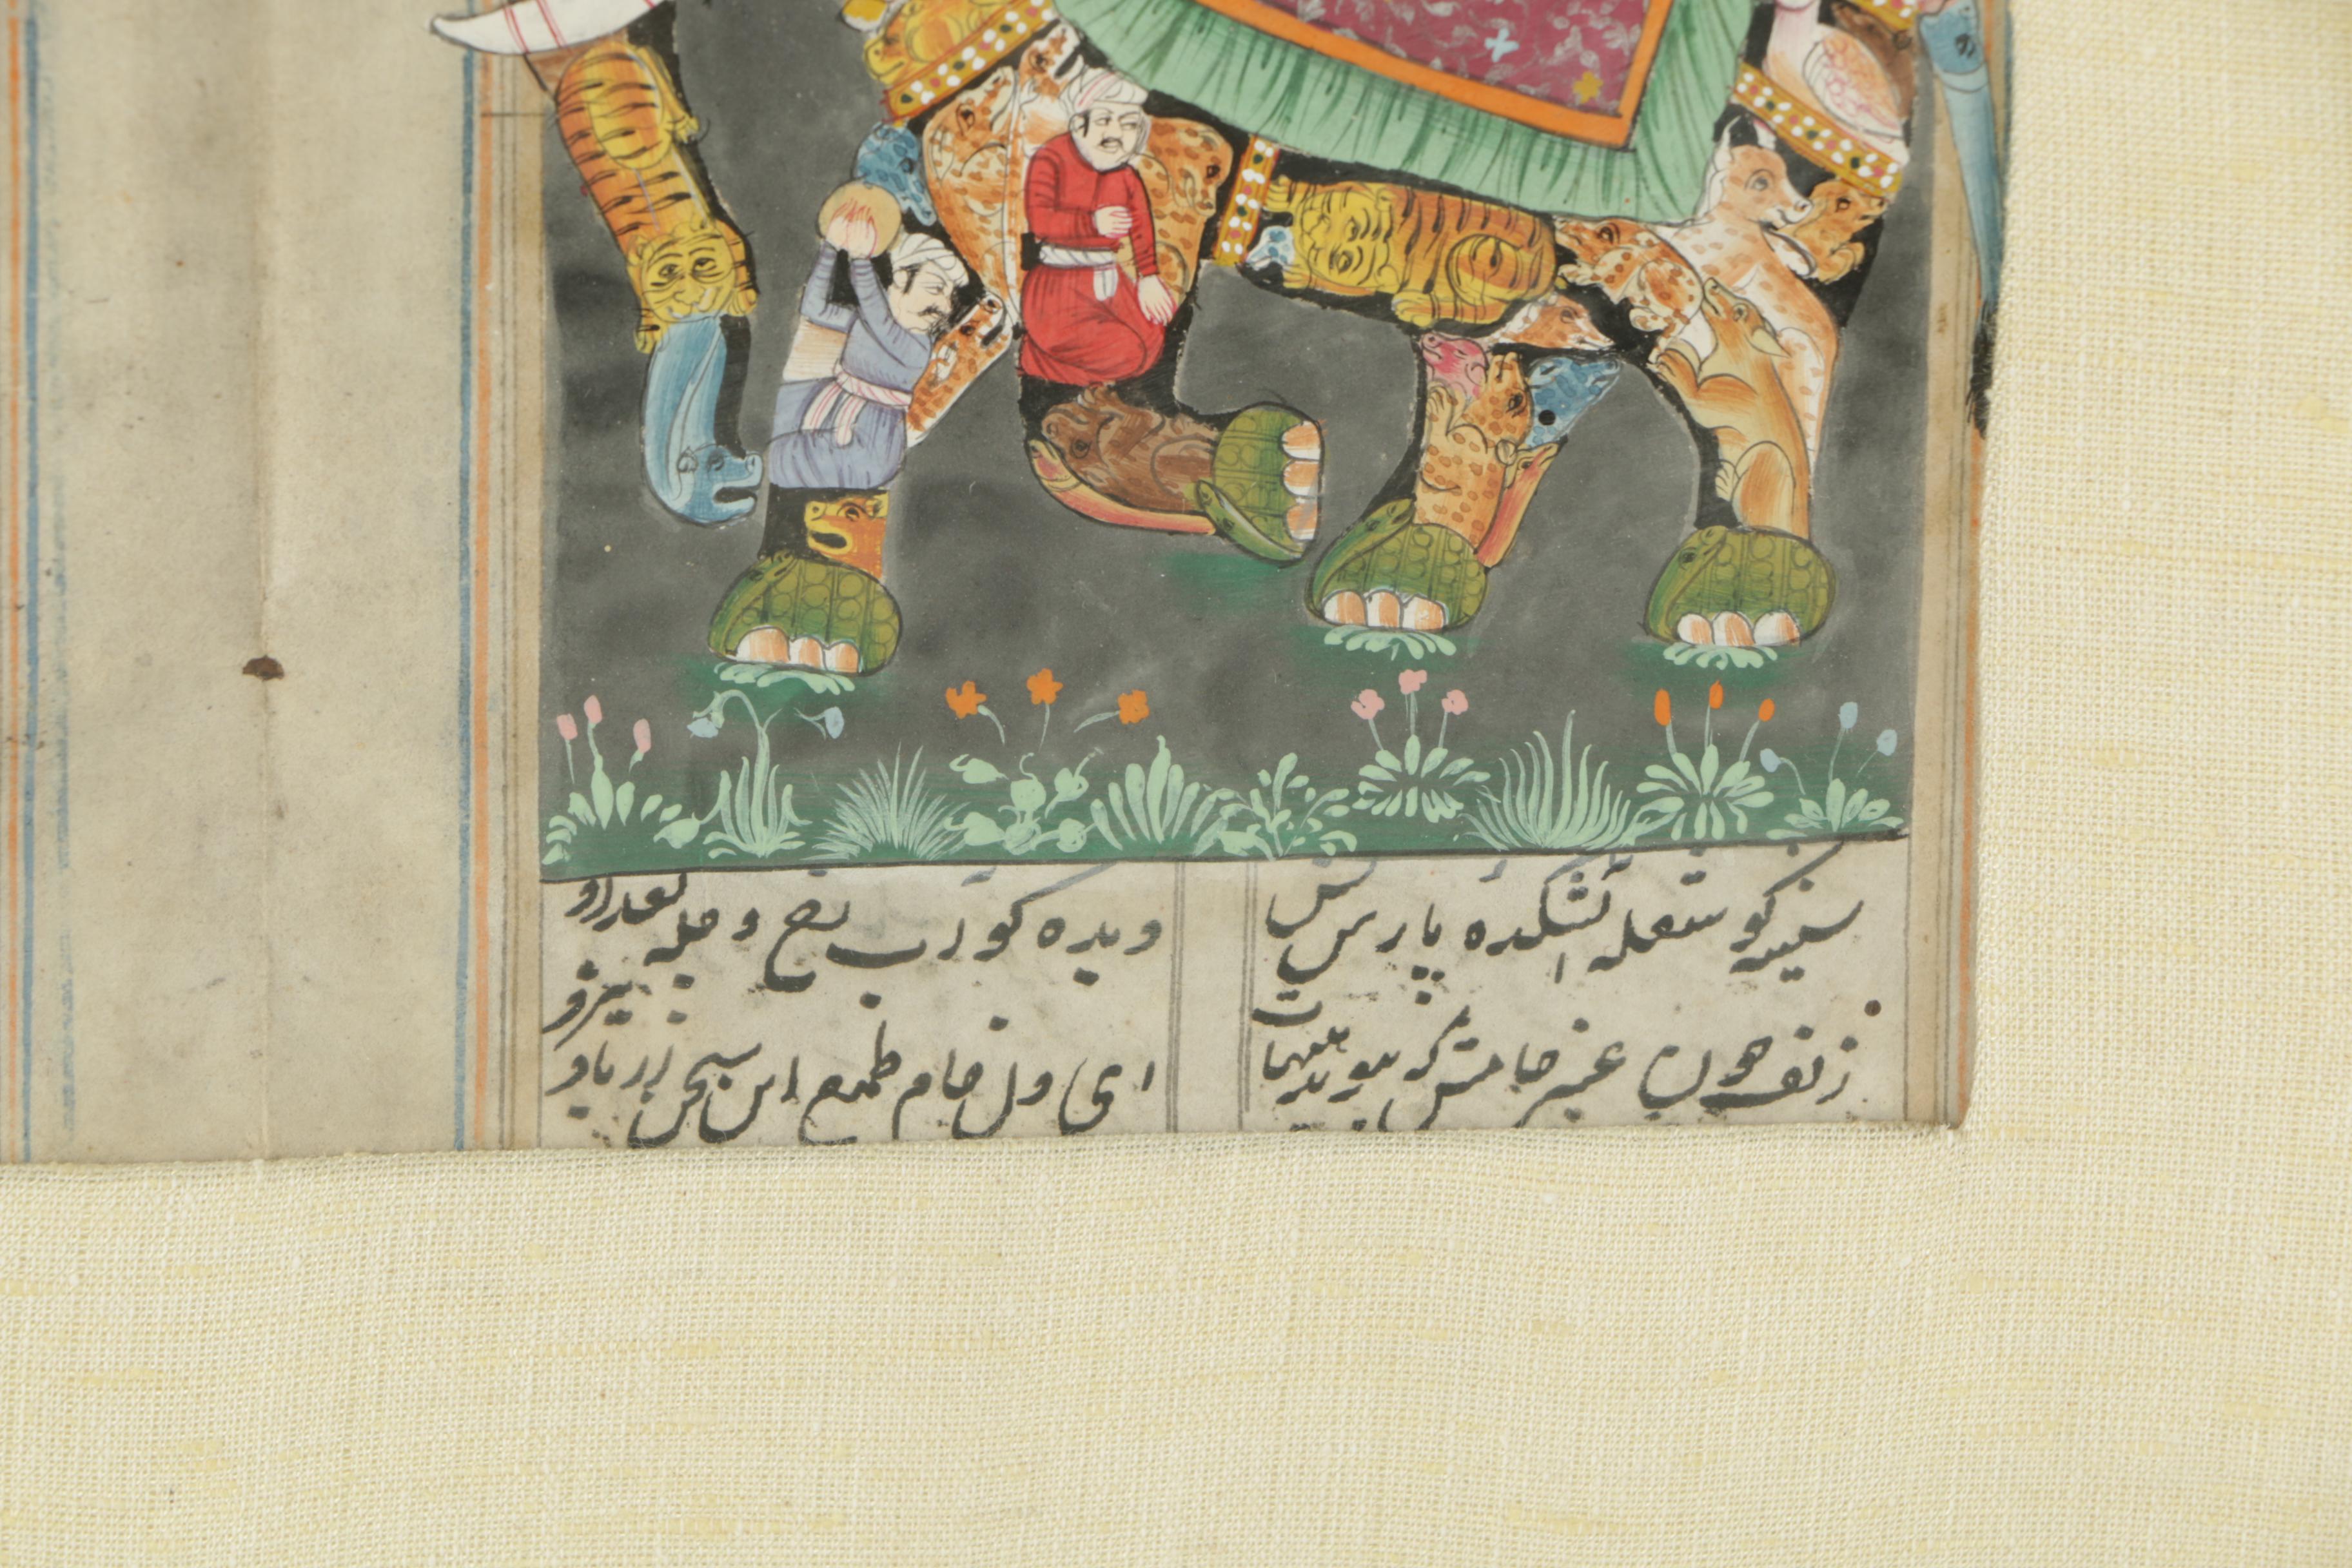 سینه کو شعله آتشکده پارس
دیده کو اب رخ دجله بغداد ببر
زلف چون عنبر خامش که ببوید هیهات
ای دل خام طمع این سخن از یاد